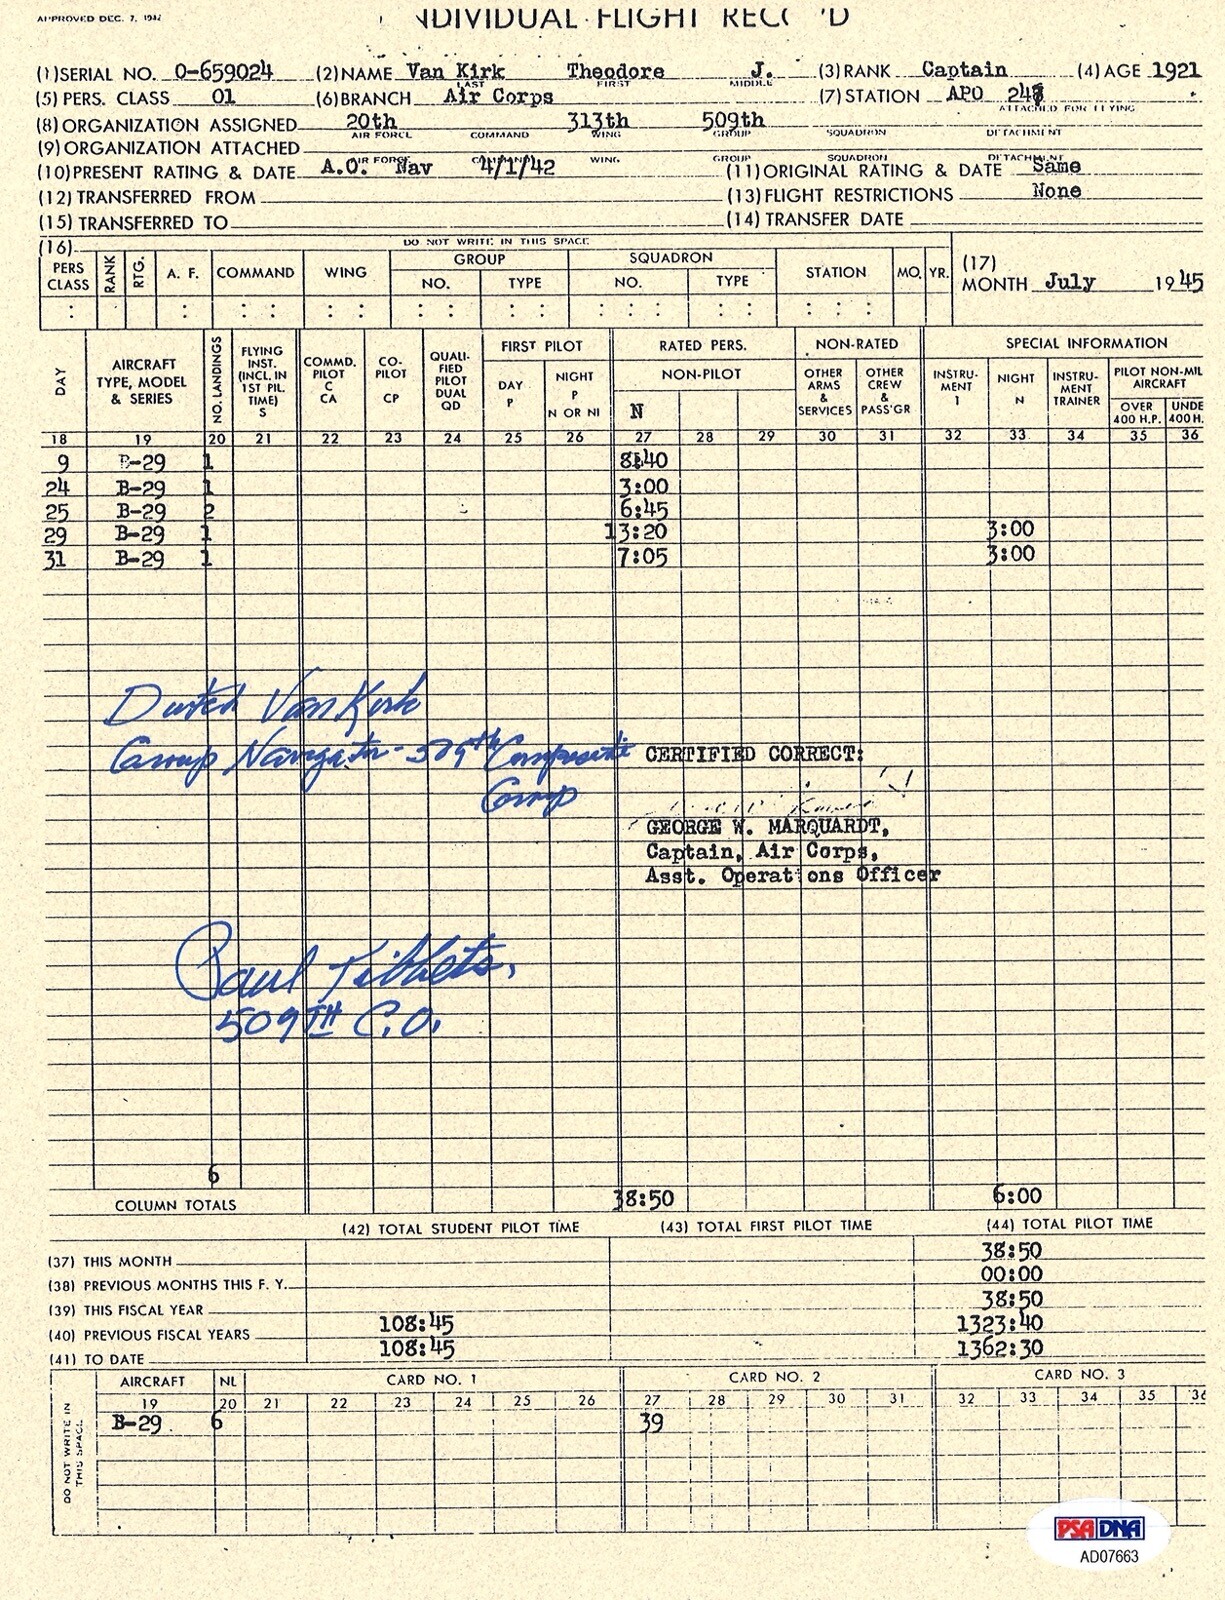 APPROVED DEC. 7, 1942
NDIVIDUAL FLIGHT REC D
(1) SERIAL NO. 0-659024 (2) NAME Van Kirk Theodore J. (3) RANK Captain (4) AGE 1921
LAST FIRST MIDDLE
(5) PERS. CLASS 01 (6) BRANCH Air Corps (7) STATION APO 248
ATTACHED FOR FLYING
(8) ORGANIZATION ASSIGNED 20th 313th 509th
AIR FORCE COMMAND WING GROUP SQUADRON DETACHMENT
(9) ORGANIZATION ATTACHED
AIR FORCE COMMAND WING GROUP SQUADRON DETACHMENT
(10) PRESENT RATING & DATE A.O. Nav 4/1/42 (11) ORIGINAL RATING & DATE Same
(12) TRANSFERRED FROM (13) FLIGHT RESTRICTIONS None
(15) TRANSFERRED TO (14) TRANSFER DATE
(16) DO NOT WRITE IN THIS SPACE
PERS CLASS RANK RTG. A. F. COMMAND WING GROUP NO. TYPE SQUADRON NO. TYPE STATION MO. YR. (17) MONTH July 1945
DAY AIRCRAFT TYPE, MODEL & SERIES NO. LANDINGS FLYING INST. (INCL. IN 1ST PIL. TIME) S COMMD. PILOT C CA CO-PILOT CP QUALI-FIED PILOT DUAL QD FIRST PILOT DAY P NIGHT P N OR NI RATED PERS. NON-PILOT N NON-RATED OTHER ARMS & SERVICES OTHER CREW & PASS'GR SPECIAL INFORMATION INSTRU-MENT I NIGHT N INSTRU-MENT TRAINER PILOT NON-MIL AIRCRAFT OVER 400 H.P. UNDE 400 H.
18 19 20 21 22 23 24 25 26 27 28 29 30 31 32 33 34 35 36
9 B-29 1 8:40
24 B-29 1 3:00
25 B-29 2 6:45
29 B-29 1 13:20 3:00
31 B-29 1 7:05 3:00
Dutch Van Kirk
Group Navigator - 509th Composite
Group
CERTIFIED CORRECT:
GEORGE W. MARQUARDT,
Captain, Air Corps,
Asst. Operations Officer
Paul Tibbets,
509TH C.O.
6
COLUMN TOTALS 38:50 6:00
(42) TOTAL STUDENT PILOT TIME (43) TOTAL FIRST PILOT TIME (44) TOTAL PILOT TIME
(37) THIS MONTH 38:50
(38) PREVIOUS MONTHS THIS F. Y. 00:00
(39) THIS FISCAL YEAR 38:50
(40) PREVIOUS FISCAL YEARS 108:45 1323:40
(41) TO DATE 108:45 1362:30
AIRCRAFT NL CARD NO. 1 CARD NO. 2 CARD NO. 3
19 20 21 22 23 24 25 26 27 28 29 30 31 32 33 34 35 36
B-29 6 39
DO NOT WRITE IN THIS SPACE
PSA DNA
AD07663